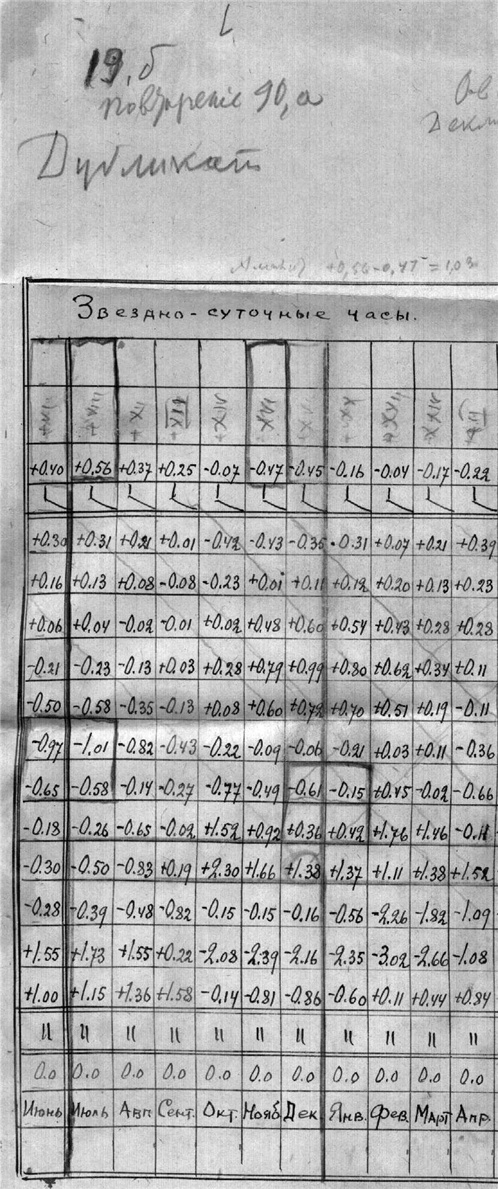 19, б
повторение 90, а
Ов
Дубликат
+0,56-0,47=1,03
Звездно-суточные часы.
+0.40 +0.56 +0.37 +0.25 -0.07 -0.47 -0.45 -0.16 -0.04 -0.17 -0.22
+0.30 +0.31 +0.21 +0.01 -0.42 -0.43 -0.35 -0.31 +0.07 +0.21 +0.39
+0.16 +0.13 +0.08 -0.08 -0.23 +0.01 +0.11 +0.12 +0.20 +0.13 +0.23
+0.06 +0.04 -0.02 -0.01 +0.02 +0.48 +0.60 +0.54 +0.43 +0.28 +0.28
-0.21 -0.23 -0.13 +0.03 +0.28 +0.79 +0.99 +0.80 +0.62 +0.34 +0.11
-0.50 -0.58 -0.35 -0.13 +0.08 +0.60 +0.72 +0.70 +0.51 +0.19 -0.11
-0.97 -1.01 -0.82 -0.43 -0.22 -0.09 -0.06 -0.21 +0.03 +0.11 -0.36
-0.65 -0.58 -0.14 -0.27 -0.77 -0.49 -0.61 -0.15 +0.45 -0.02 -0.66
-0.18 -0.26 -0.65 -0.02 +1.52 +0.92 +0.36 +0.42 +1.76 +1.46 -0.11
-0.30 -0.50 -0.83 +0.19 +2.30 +1.66 +1.38 +1.37 +1.11 +1.38 +1.52
-0.28 -0.39 -0.48 -0.82 -0.15 -0.15 -0.16 -0.56 -2.26 -1.82 -1.09
+1.55 +1.73 +1.55 +0.22 -2.08 -2.39 -2.16 -2.35 -3.02 -2.66 -1.08
+1.00 +1.15 +1.36 +1.58 -0.14 -0.81 -0.86 -0.60 +0.11 +0.44 +0.84
" " " " " " " " " " "
0.0 0.0 0.0 0.0 0.0 0.0 0.0 0.0 0.0 0.0 0.0
Июнь Июль Авг. Сент. Окт. Нояб. Дек. Янв. Фев. Март Апр.